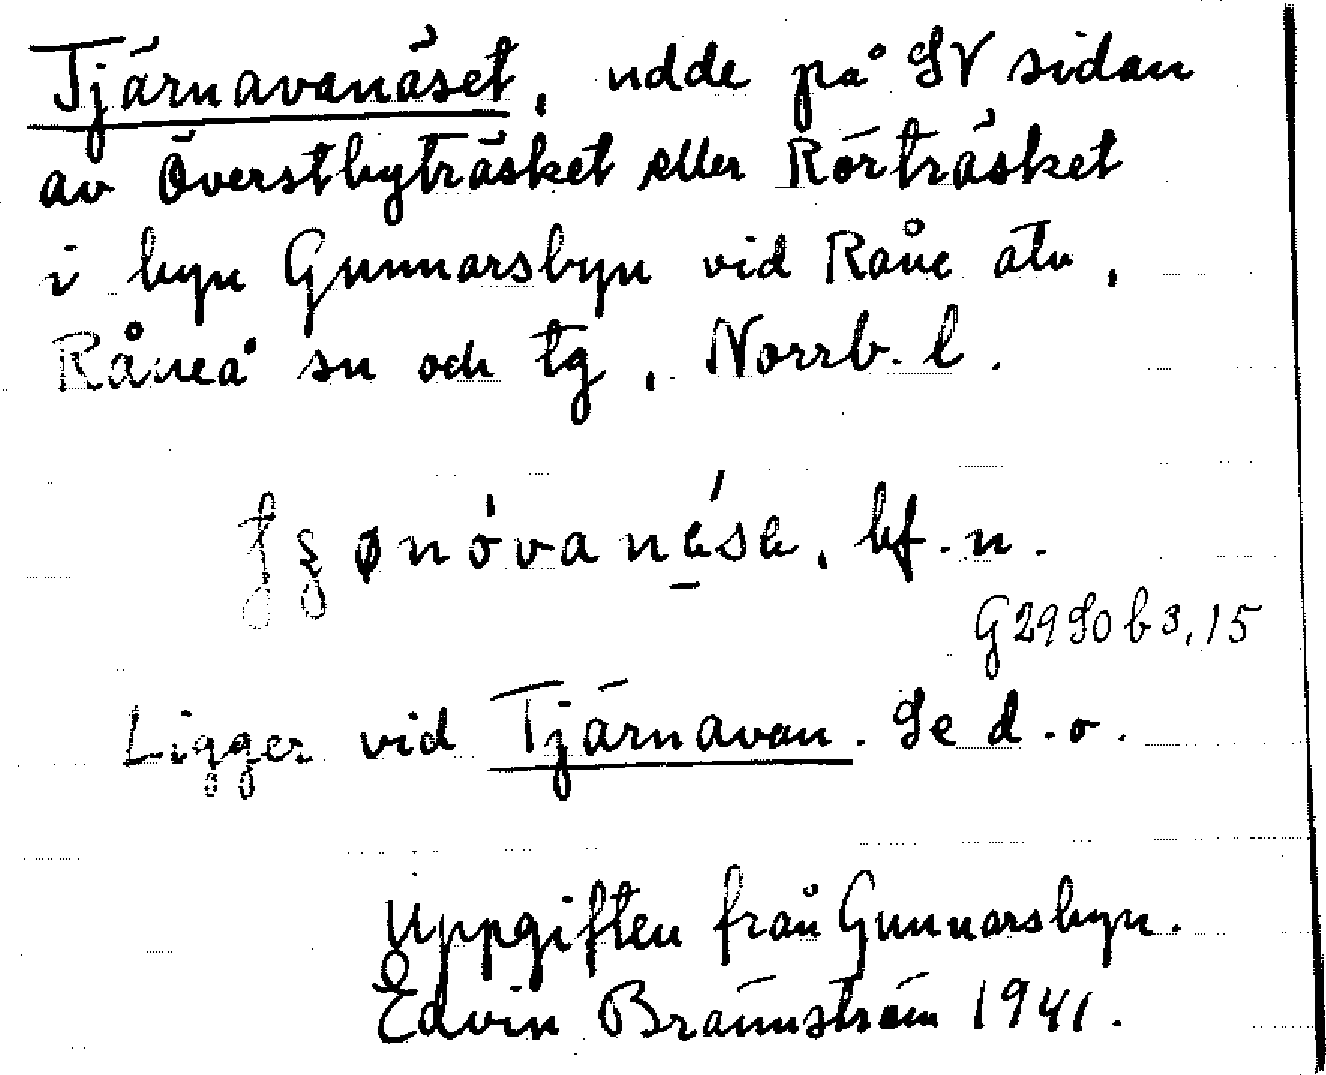 Tjärnavanäset, udde på SV sidan
av Överstbyträsket eller Rörträsket
i byn Gunnarsbyn vid Råne älv,
Råneå sn och tg, Norrb. l.
bf. n.
G2980b3,15
Ligger vid Tjärnavan. Se d. o.
Uppgiften från Gunnarsbyn.
Edvin Brännström 1941.